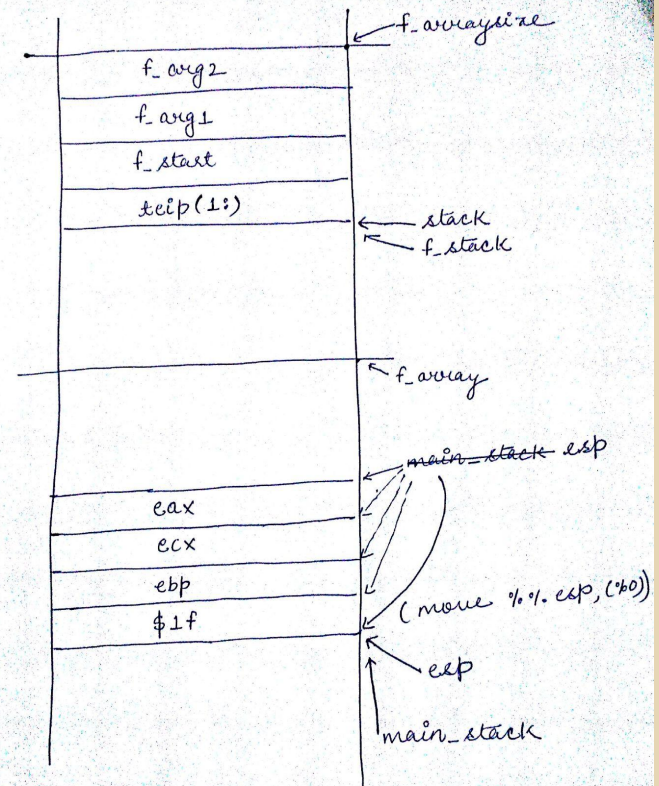 f_arraysize
f_arg2
f_arg1
f_start
teip(1:)
stack
f_stack
f_array
main_stack esp
eax
ecx
ebp
(move %%esp,(%0))
$1f
esp
main_stack